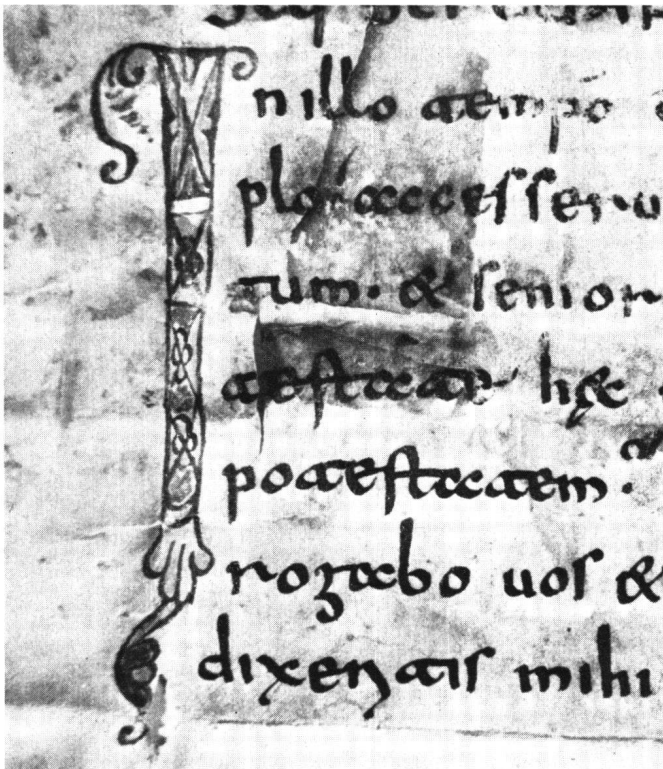 Seq sci
In illo tempo
plo accesseru
tum. & senior
testate hęc
potestatem.
rogabo uos &
dixeritis mihi